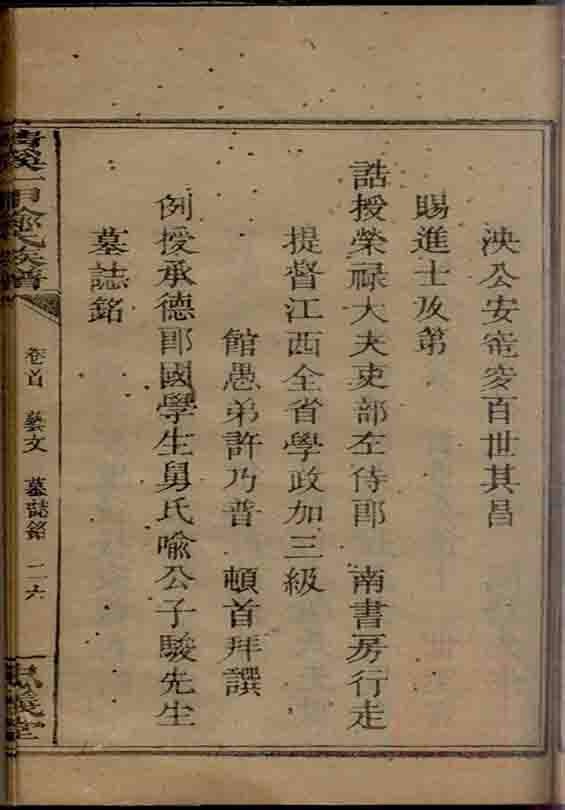 泱公安窀穸百世其昌
賜進士及第
誥授榮祿大夫吏部左侍郎　南書房行走
提督江西全省學政加三級
館愚弟許乃普　頓首拜譔
例授承德郎國學生舅氏喻公子駿先生
墓誌銘
氏族譜
卷首　藝文　墓誌銘　二六
義堂